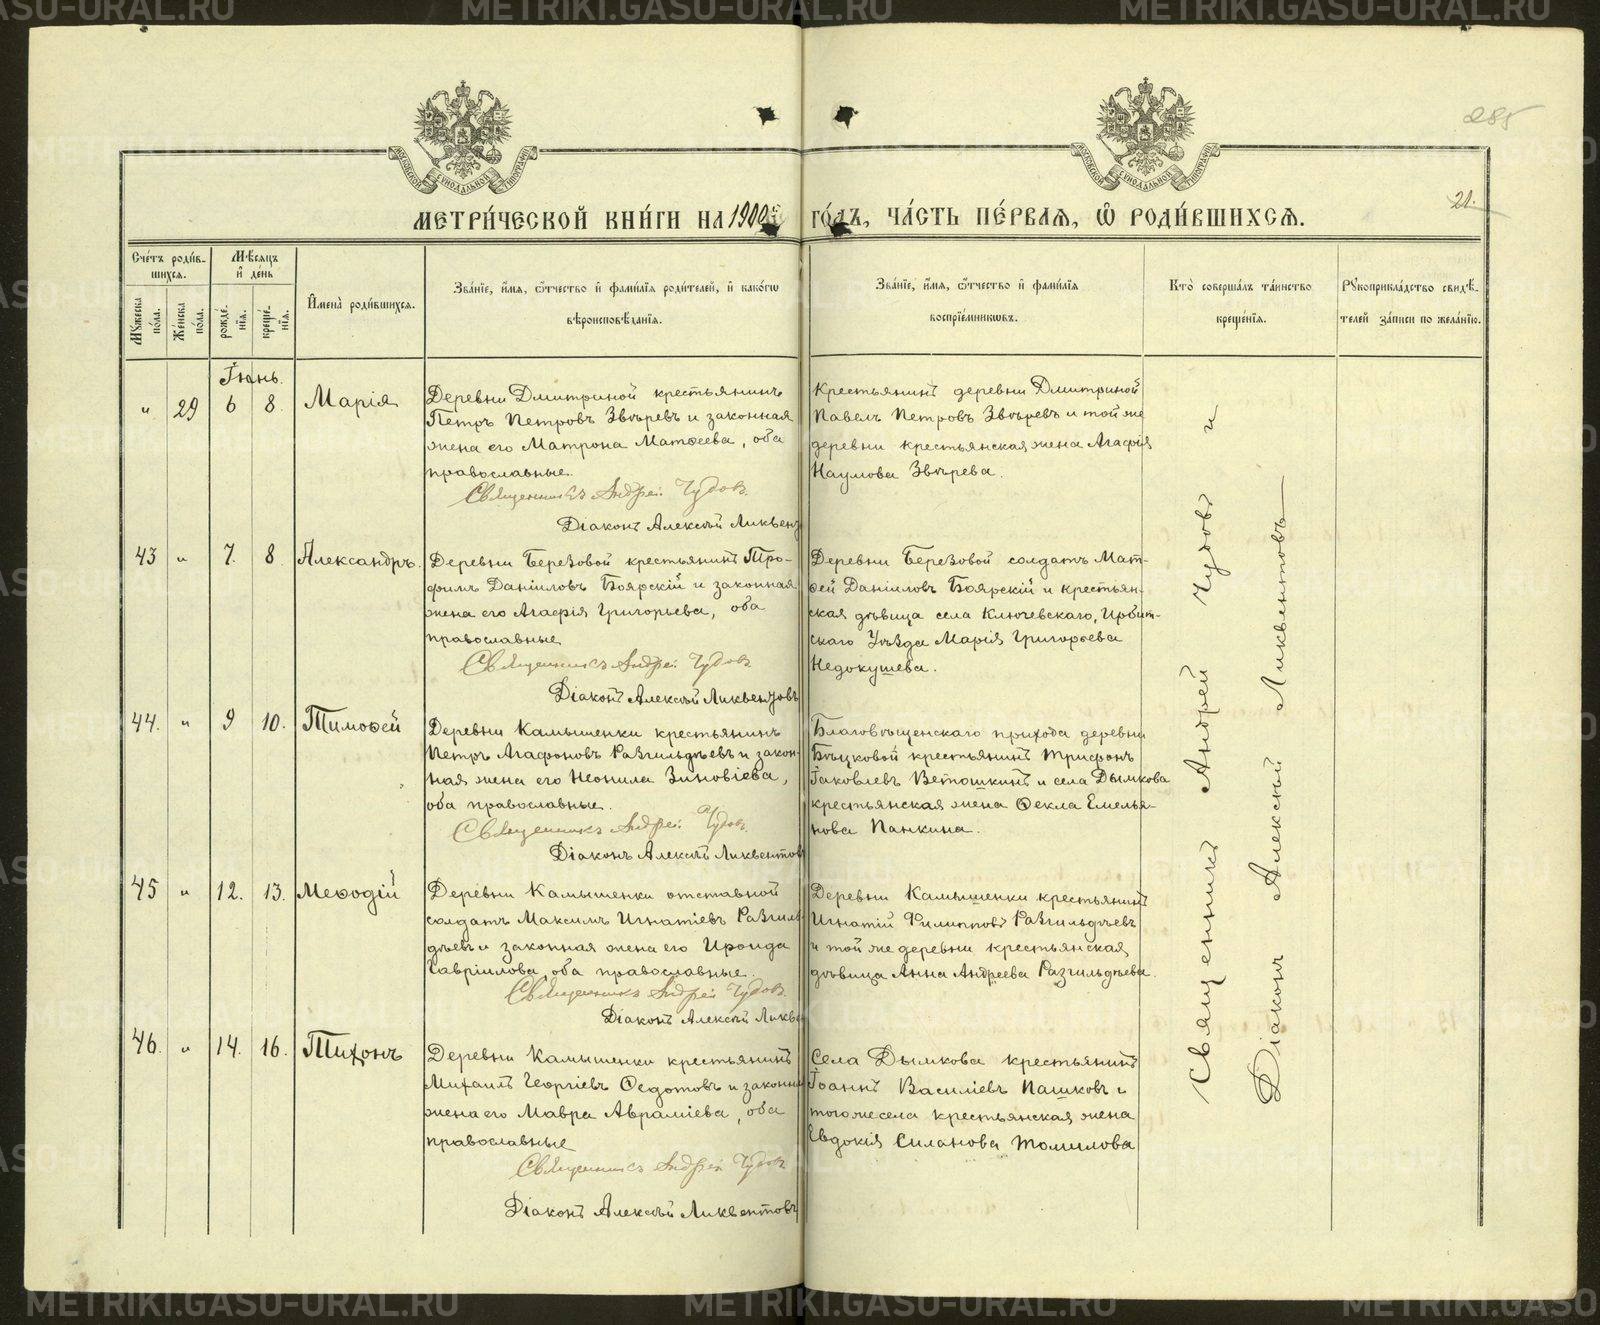 METRIKI.GASU-URAL.RU
285
МОСКОВСКОЙ СѴНОДАЛЬНОЙ ТИПОГРАФИИ
МОСКОВСКОЙ СѴНОДАЛЬНОЙ ТИПОГРАФИИ
21.
МЕТРИ́ЧЕСКОЙ КНИ́ГИ НА 1900 ГО́ДЪ, ЧА́СТЬ ПЕ́РВАЯ, Ѿ РОДИ́ВШИХСѦ.
Сче́тъ роди́вшихся.
Мѣ́сяцъ и де́нь
Мꙋ́жеска по́ла.
Же́нска по́ла.
рожде́нїя.
креще́нїя.
И҆мена̀ роди́вшихся.
Зва́нїе, и҆́мя, ѻ҆́тчество и҆ фами́лїя роди́телей, и҆ како́гѡ
вѣроисповѣ́данїя.
Зва́нїе, и҆́мя, ѻ҆́тчество и҆ фами́лїя
воспрїе́мникѡвъ.
Кто̀ соверша́лъ та́инство
креще́нїя.
Рꙋкоприкла́дство свидѣ́-
телей за́писи по жела́нїю.
Іюнь.
" 29 6 8. Марія
Деревни Дмитриной крестьянинъ
Петръ Петровъ Звѣревъ и законная
жена его Матрона Матѳеева, оба
православные.
Священникъ Андрей Чудовъ.
Діаконъ Алексѣй Ликвен
Крестьянинъ деревни Дмитриной
Павелъ Петровъ Звѣревъ и той же
деревни крестьянская жена Агафія
Наумова Звѣрева.
43 " 7. 8 Александръ.
Деревни Березовой крестьянинъ Тро-
фимъ Даніиловъ Боярскій и законная
жена его Агафія Григорьева, оба
православные
Священникъ Андрей Чудовъ
Діаконъ Алексѣй Ликвентовъ
Деревни Березовой солдатъ Мат-
ѳей Даніиловъ Боярскій и крестьян-
ская дѣвица села Ключевскаго, Ирбит-
скаго Уѣзда Марія Григорьева
Недокушева.
44. " 9 10. Тимоѳей
Деревни Камышенки крестьянинъ
Петръ Агафоновъ Разгильдѣевъ и закон-
ная жена его Неонила Зиновіева,
оба православные.
Священникъ Андрей Чудовъ.
Діаконъ Алексѣй Ликвентов
Благовѣщенскаго прихода деревни
Бѣцковой крестьянинъ Трифонъ
Іаковлевъ Ветошкинъ и села Дымкова
крестьянская жена Ѳекла Емелья-
нова Панкина.
45 " 12. 13. Меѳодій
Деревни Камышенки отставной
солдатъ Максимъ Игнатіевъ Разгиль-
дѣевъ и законная жена его Ироида
Гавріилова, оба православные.
Священникъ Андрей Чудовъ.
Діаконъ Алексѣй Ликве
Деревни Камышенки крестьянинъ
Игнатій Филипповъ Разгильдѣевъ
и той же деревни крестьянская
дѣвица Анна Андреева Разгильдѣева.
46. " 14. 16. Тихонъ
Деревни Камышенки крестьянинъ
Михаилъ Георгіевъ Ѳедотовъ и законн
жена его Мавра Авраміева, оба
православные
Священникъ Андрей Чудовъ
Діаконъ Алексѣй Ликвентовъ
Села Дымкова крестьянинъ
Іоаннъ Василіевъ Пашковъ и
того же села крестьянская жена
Евдокія Силанова Томилова
Священникъ Андрей Чудовъ и
Діаконъ Алексѣй Ликвентовъ